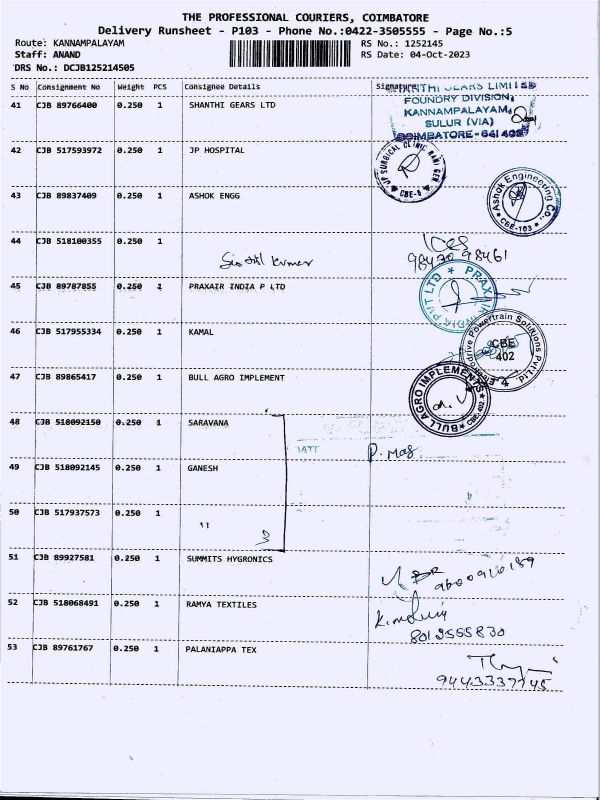 THE PROFESSIONAL COURIERS, COIMBATORE
Delivery Runsheet - P103 - Phone No.:0422-3505555 - Page No.:5
Route: KANNAMPALAYAM
RS No.: 1252145
Staff: ANAND
RS Date: 04-Oct-2023
DRS No.: DCJB125214505
S No Consignment No Weight PCS Consignee Details Signature
41 CJB 89766400 0.250 1 SHANTHI GEARS LTD
SHANTHI GEARS LIMITED
FOUNDRY DIVISION,
KANNAMPALAYAM,
SULUR (VIA)
COIMBATORE-641 402
42 CJB 517593972 0.250 1 JP HOSPITAL
JP SURGICAL CLINIC
CBE-6
43 CJB 89837409 0.250 1 ASHOK ENGG
Ashok Engineering Co.,
CBE-103
44 CJB 518100355 0.250 1
Kumar
45 CJB 89787855 0.250 1 PRAXAIR INDIA P LTD
PRAXAIR INDIA PVT LTD
46 CJB 517955334 0.250 1 KAMAL
Powertrain Solutions Pvt Ltd
CBE
402
47 CJB 89865417 0.250 1 BULL AGRO IMPLEMENT
BULL AGRO IMPLEMENTS
CBE-402
48 CJB 518092150 0.250 1 SARAVANA
49 CJB 518092145 0.250 1 GANESH
50 CJB 517937573 0.250 1 "
3
51 CJB 89927581 0.250 1 SUMMITS HYGRONICS
52 CJB 518068491 0.250 1 RAMYA TEXTILES
8012555830
53 CJB 89761767 0.250 1 PALANIAPPA TEX
9443337745